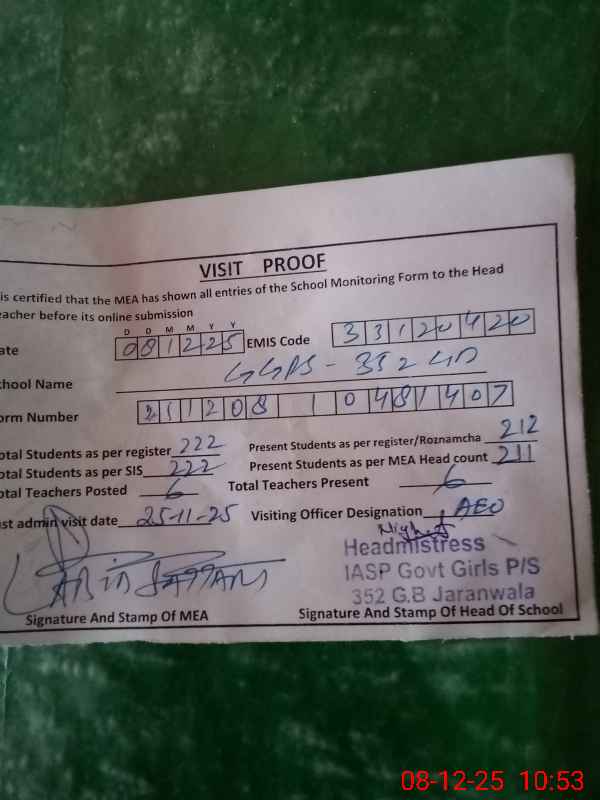 VISIT PROOF
is certified that the MEA has shown all entries of the School Monitoring Form to the Head
eacher before its online submission
D D M M Y Y
ate 081225 EMIS Code 33120420
chool Name GGPS - 352 GB
orm Number 211208 1 0481407
otal Students as per register 222 Present Students as per register/Roznamcha 212
otal Students as per SIS 222 Present Students as per MEA Head count 211
otal Teachers Posted 6 Total Teachers Present 6
st admin visit date 25-11-25 Visiting Officer Designation AEO
Headmistress
IASP Govt Girls P/S
352 G.B Jaranwala
Signature And Stamp Of MEA Signature And Stamp Of Head Of School
08-12-25 10:53